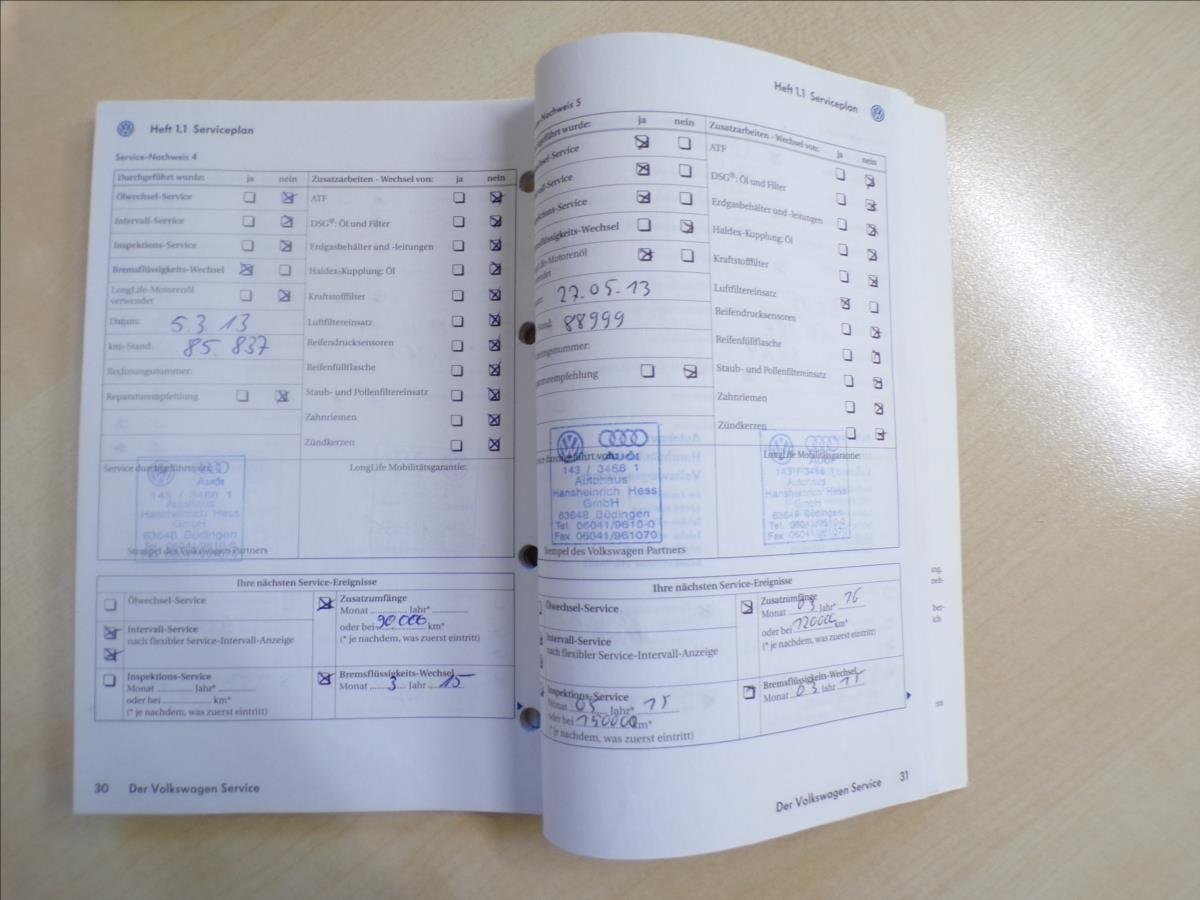 Heft 1.1 Serviceplan
Service-Nachweis 4
Durchgeführt wurde: ja nein
Ölwechsel-Service
Intervall-Service
Inspektions-Service
Bremsflüssigkeits-Wechsel
LongLife-Motorenöl
verwendet
Datum: 5.3.13
km-Stand: 85.837
Rechnungsnummer:
Reparaturempfehlung
Zusatzarbeiten - Wechsel von: ja nein
ATF
DSG®: Öl und Filter
Erdgasbehälter und -leitungen
Haldex-Kupplung: Öl
Kraftstofffilter
Luftfiltereinsatz
Reifendrucksensoren
Reifenfüllflasche
Staub- und Pollenfiltereinsatz
Zahnriemen
Zündkerzen
Service durchgeführt
LongLife Mobilitätsgarantie:
Audi
143 / 3466 1
Autohaus
Hansheinrich Hess
GmbH
63648 Büdingen
Tel. 06041/9610-0
Fax 06041/961070
Stempel des Volkswagen Partners
Ihre nächsten Service-Ereignisse
Ölwechsel-Service
Intervall-Service
nach flexibler Service-Intervall-Anzeige
Inspektions-Service
Monat Jahr*
oder bei km*
(* je nachdem, was zuerst eintritt)
Zusatzumfänge
Monat Jahr*
oder bei 90000 km*
(* je nachdem, was zuerst eintritt)
Bremsflüssigkeits-Wechsel
Monat 3 Jahr 15
30 Der Volkswagen Service
Heft 1.1 Serviceplan
Nachweis 5
wurde: ja nein
-Service
-Service
-Service
-Wechsel
-Motorenöl
27.05.13
Stand: 88999
Zusatzarbeiten - Wechsel von: ja nein
ATF
DSG®: Öl und Filter
Erdgasbehälter und -leitungen
Haldex-Kupplung: Öl
Kraftstofffilter
Luftfiltereinsatz
Reifendrucksensoren
Reifenfüllflasche
Staub- und Pollenfiltereinsatz
Zahnriemen
Zündkerzen
LongLife Mobilitätsgarantie:
Audi
143 / 3466 1
Autohaus
Hansheinrich Hess
GmbH
63648 Büdingen
Tel. 06041/9610-0
Fax 06041/961070
Audi
143 / 3466 1
Autohaus
Hansheinrich Hess
GmbH
63648 Büdingen
Tel. 06041/9610-0
Fax 06041/961070
Stempel des Volkswagen Partners
Ihre nächsten Service-Ereignisse
Ölwechsel-Service
Intervall-Service
nach flexibler Service-Intervall-Anzeige
Inspektions-Service
Monat 05 Jahr* 15
oder bei 150000 km*
(* je nachdem, was zuerst eintritt)
Zusatzumfänge
Monat 03 Jahr* 16
oder bei 12000 km*
(* je nachdem, was zuerst eintritt)
Bremsflüssigkeits-Wechsel
Monat 03 Jahr 15
Der Volkswagen Service 31